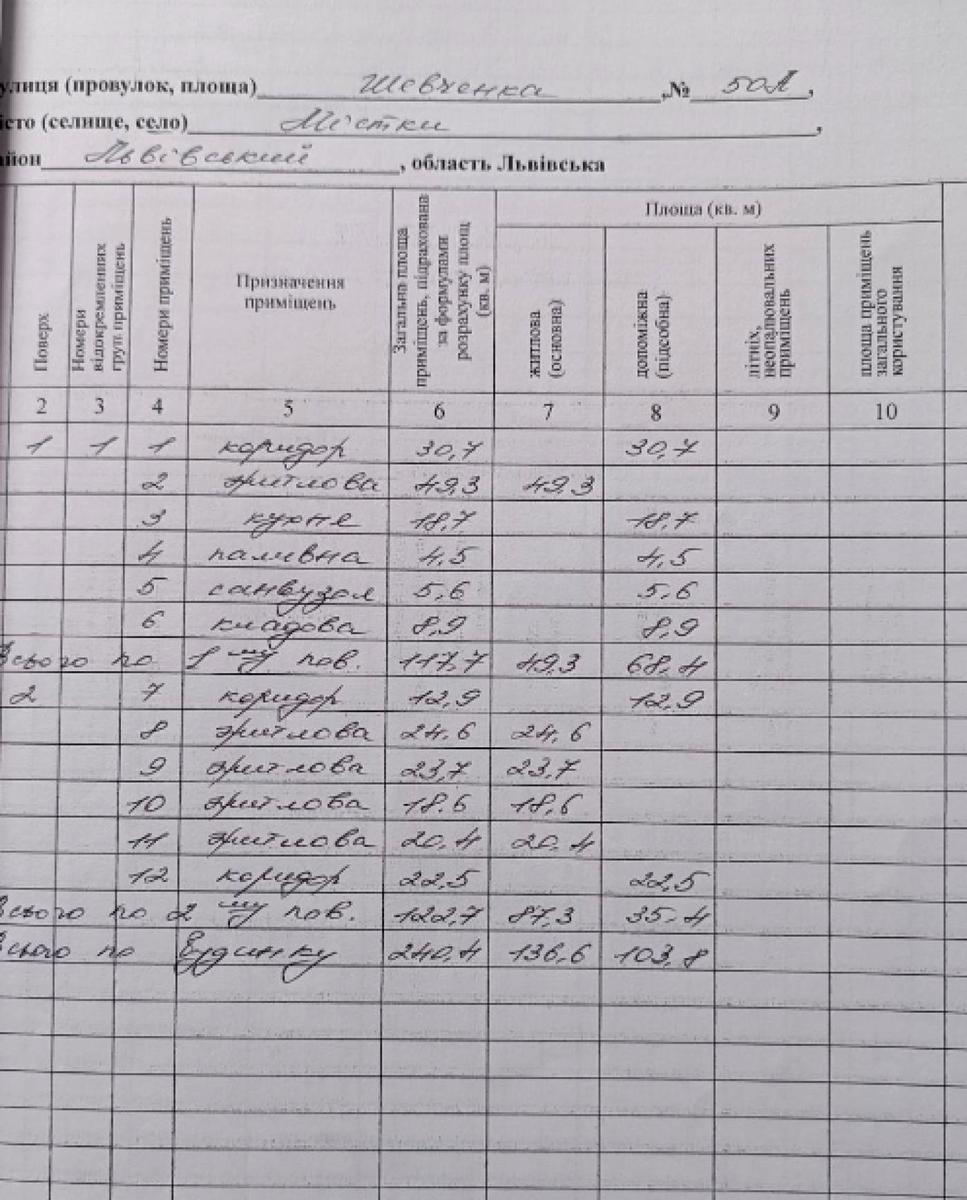 улиця (провулок, площа) Шевченка ,№ 50А,
істо (селище, село) Містки ,
айон Львівський , область Львівська
Поверх
Номери відокремлених груп приміщень
Номери приміщень
Призначення приміщень
Загальна площа приміщень, підрахована за формулами розрахунку площ (кв. м)
Площа (кв. м)
житлова (основна)
допоміжна (підсобна)
літніх, неопалювальних приміщень
площа приміщень загального користування
2 3 4 5 6 7 8 9 10
1 1 1 коридор 30,7 30,7
2 житлова 49,3 49,3
3 кухне 18,7 18,7
4 паливна 4,5 4,5
5 санвузол 5,6 5,6
6 кладова 8,9 8,9
Всього по 1 му пов. 117,7 49,3 68,4
2 7 коридор 12,9 12,9
8 житлова 24,6 24,6
9 житлова 23,7 23,7
10 житлова 18,6 18,6
11 житлова 20,4 20,4
12 коридор 22,5 22,5
Всього по 2 му пов. 122,7 87,3 35,4
Всього по будинку 240,4 136,6 103,8